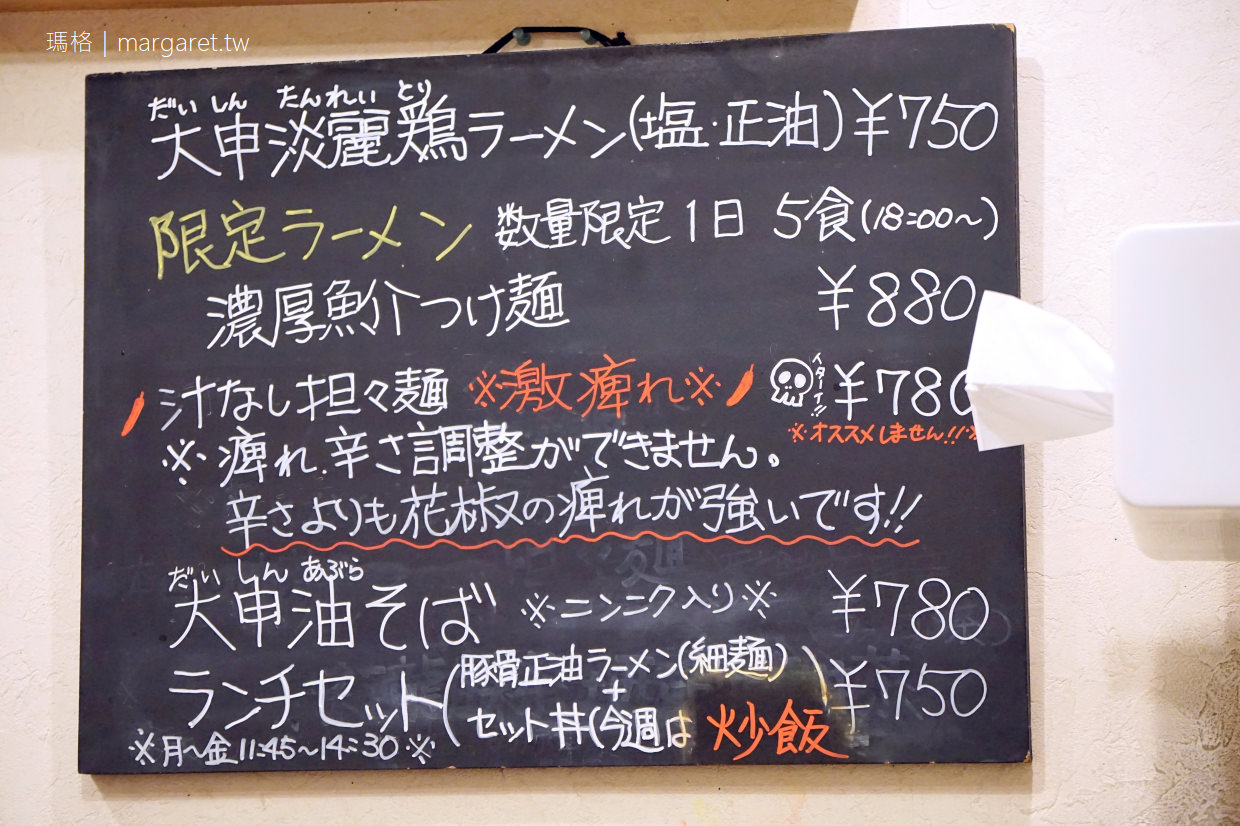 瑪格 | margaret.tw
だいしん たんれい とり
大申淡麗鶏ラーメン(塩・正油)¥750
限定ラーメン 数量限定1日 5食(18:00~)
濃厚魚介つけ麺 ¥880
汁なし担々麺 ※激痺れ※ イターイ!! ¥780
※オススメしません!!※
※痺れ.辛さ調整ができません。
辛さよりも花椒の痺れが強いです!!
だい しん あぶら
大申油そば ※ニンニク入り※ ¥780
ランチセット(豚骨正油ラーメン(細麺) + セット丼(今週は 炒飯) ¥750
※月~金11:45~14:30※